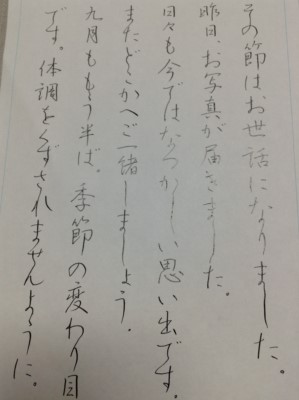 その節はお世話になりました。
昨日、お写真が届きました。
日々も今ではなつかしい思い出です。
またどこかへご一緒しましょう.
九月ももう半ば。季節の変わり目
です。体調をくずされませんように。